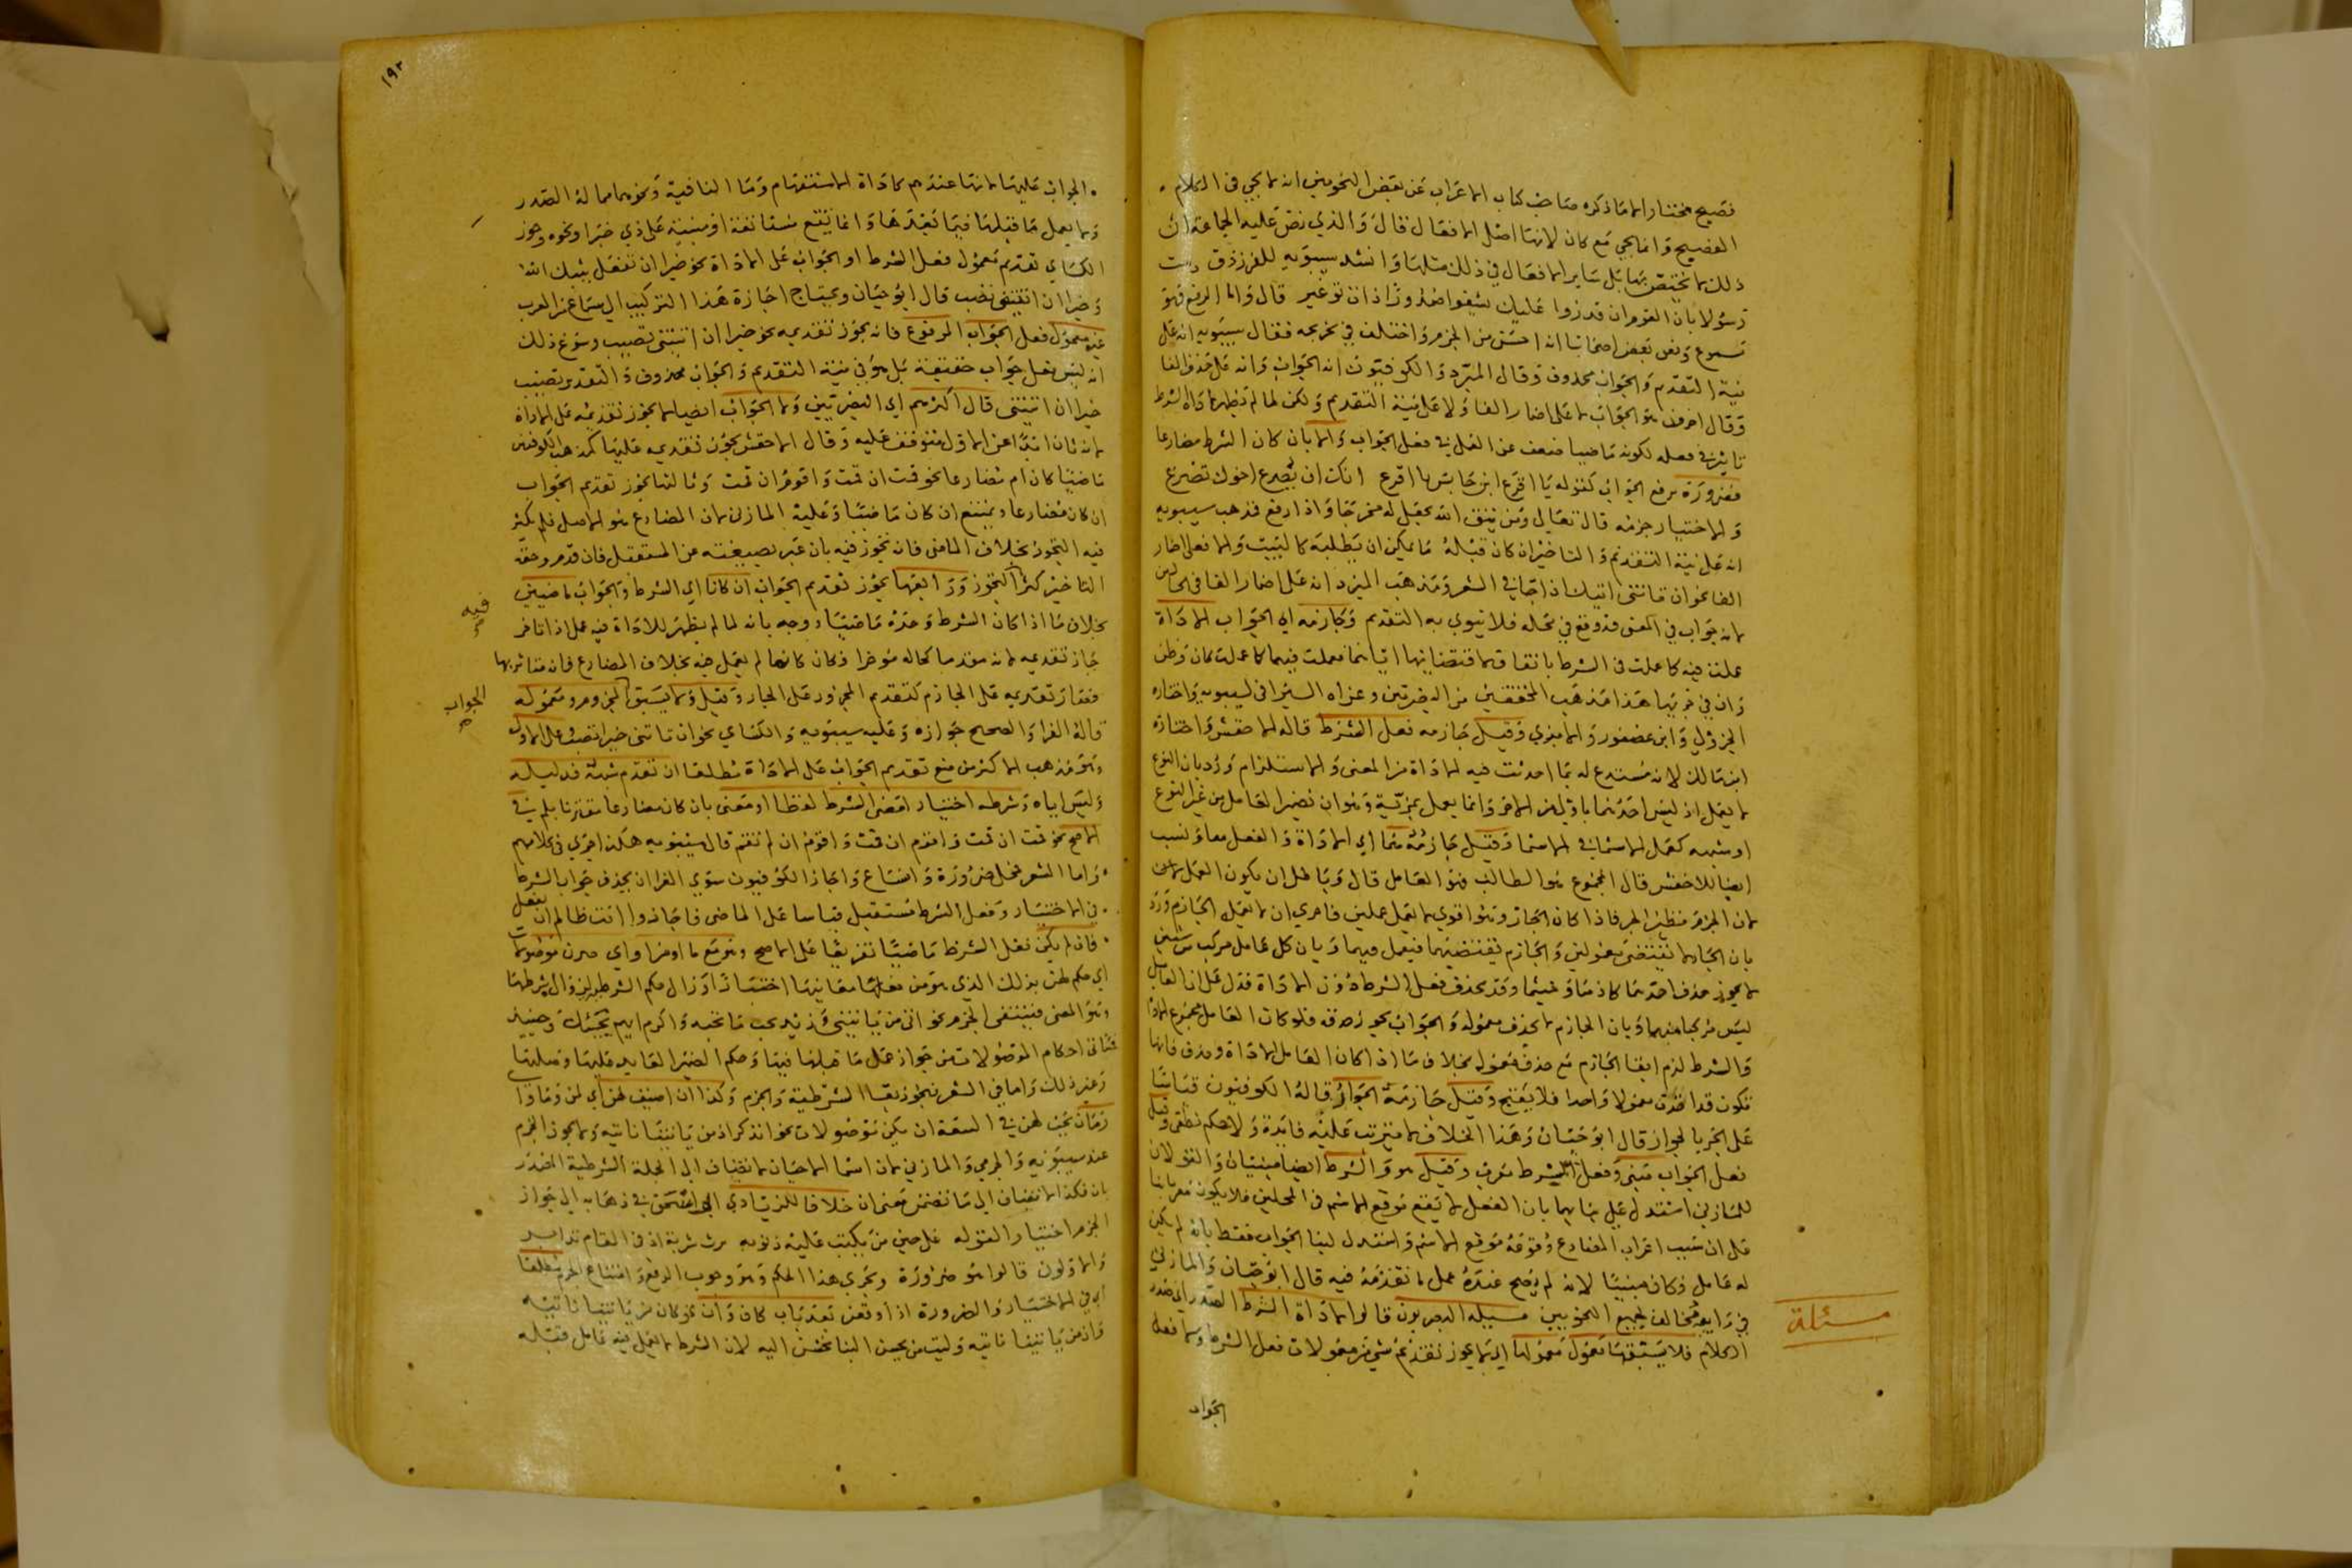 فصيح مختار الا ما ذكره صاحب كتاب الاعراب عن بعض النحويين انه لا يجي في الكلام
الفصيح وانما يجي مع كان لانها اصل الافعال قال والذي نص عليه الجماعة ان
ذلك لا يختص بها بل ساير الافعال في ذلك مثلها وانشد سيبويه للفرزدق دست
رسولا بان القوم ان قدروا عليك يشفوا صدورا ذات توغير قال واما الرفع فهو
مسموع ونص بعض اصحابنا انه احسن من الجزم واختلف في تخريجه فقال سيبويه انه على
نية التقديم والجواب محذوف وقال المبرد والكوفيون انه الجواب وانه على حذف الفا
وقال اخرون هو الجواب لا على اضمار الفا ولا على نية التقديم ولكن لما لم تظهر لاداة الشرط
تاثير في فعله لكونه ماضيا ضعف عن العمل في فعل الجواب واما بان كان الشرط مضارعا
فضرورة رفع الجواب كقوله يا اقرع ابن حابس يا اقرع انك ان يصرع اخوك تصرع
والاختيار جزمه قال تعالى ومن يتق الله يجعل له مخرجا واذا رفع فذهب سيبويه
انه على نية التقديم والتاخير ان كان قبله ما يمكن ان يطلبه كالبيت والا فعلى اضمار
الفا نحو ان تاتني اتيك اذا جا في الشعر ومذهب المبرد انه على اضمار الفا في الحالين
لانه جواب في المعنى قد وقع في محله فلا ينوي به التقديم وجازمه اي الجواب الاداة
عملت فيه كما عملت في الشرط باتفاق لاقتضائها اياهما فعملت فيهما كما عملت كان وظن
وان في جزيها هذا مذهب المحققين من البصريين وعزاه السيرافي لسيبويه واختاره
الجزولي وابن عصفور والابذي وقيل جازمه فعل الشرط قاله الاخفش واختاره
ابن مالك لانه مستدع له بما احدثت فيه الاداة من المعنى والاستلزام ورد بان النوع
لا يعمل اذ ليس احدهما باولى من الاخر وانما يعمل بمزية وهو ان تضمر العامل من غير النوع
او شبهه كعمل الاسما في الاسما وقيل جازمه هما اي الاداة والفعل معا ونسب
ايضا للاخفش قال المجموع هو الطالب فهو العامل قال وباطل ان يكون العمل لان
لان الجزم نظير الجر فاذا كان الجار وهو اقوى لا يعمل عملين فاحرى ان لا يعمل الجازم ورد
بان الجار لا يقتضي معمولين والجازم يقتضيهما فيعمل فيهما وبان كل عامل مركب من شيئين
لا يجوز حذف احدهما كاذما وحيثما وقد يحذف فعل الشرط دون الاداة فدل على ان العامل
ليس مركبا منهما وبان الجازم لا يحذف معموله والجواب يجوز حذفه فلو كان العامل مجموع الاداة
والشرط لزم ابقا الجازم مع حذف معموله بخلاف ما اذا كان العامل الاداة وحذف فانها
تكون قد ابقت معمولا واحدا فلا يقبح وقيل جازمه الجوار قاله الكوفيون قياسا
على الجر بالجوار قال ابو حيان وهذا الخلاف لا يترتب عليه فايدة ولا حكم نطقي وقيل
فعل الجواب مبني وفعل الشرط معرب وقيل هو والشرط ايضا مبنيان والقولان
للمازني استدل على بنائهما بان الفعل لا يقع موقع الاسم في المحلين فلا يكون معربا بنا
على ان سبب اعراب المضارع وقوعه موقع الاسم واستدل لبنا الجواب فقط بانه لم يكن
له عامل وكان مبنيا لانه لم يصح عنده عمل ما تقدمه فيه قال ابو حيان والمازني
في رايه مخالف لجميع النحويين مسيلة البصريون قالوا لاداة الشرط الصدر اي صدر
الكلام فلا يسبقها معمول معمولها اي لا يجوز تقديم شي من معمولات فعل الشرط ولا فعل
مسئلة
الجواب
١٩٣
الجواب عليها لانها عندهم كاداة الاستفهام وما النافية ونحوهما مما له الصدر
ولا يعمل ما قبلها فيما بعدها وانما تقع مستانفة او مبنية على ذي خبر او نحوه وجوز
الكسائي تقديم معمول فعل الشرط او الجواب على الاداة نحو خيرا ان تفعل يثبك الله
وخيرا ان اتيتني نصب قال ابو حيان ويحتاج اجازة هذا التركيب الى سماع من العرب
غير معمول فعل الجواب المرفوع فانه يجوز تقديمه نحو خيرا ان اتيتني تصيب وسوغ ذلك
انه ليس فعل جواب حقيقة بل هو في نية التقديم والجواب محذوف والتقدير تصيب
خيرا ان اتيتني قال اكثرهم اي البصريين ولا الجواب ايضا لا يجوز تقديمه على الاداة
لانه ثان ابدا عن الاول متوقف عليه وقال الاخفش يجوز تقديمه عليها كمذهب الكوفيين
ماضيا كان ام مضارعا نحو قمت ان قمت واقوم ان قمت وثالثها يجوز تقديم الجواب
ان كان مضارعا ويمتنع ان كان ماضيا وعليه المازني لان المضارع هو الاصل فلم يكثر
فيه التجوز بخلاف الماضي فانه تجوز فيه بان عبر بصيغته عن المستقبل فان قدم وحقه
التاخير كثر التجوز ورابعها يجوز تقديم الجواب ان كانا اي الشرط والجواب ماضيين
بخلاف ما اذا كان الشرط وحده ماضيا ووجه بانه لما لم يظهر للاداة فيه عمل اذا تاخر
جاز تقديمه لانه مقدما كحاله موخرا وكان كانها لم تعمل فيه بخلاف المضارع فانه متاثر بها
فصار تقديمه على الجازم كتقديم المجرور على الجار وقيل ولا يسبق المجزوم ومعموله
قاله الفرا والصحيح جوازه وعليه سيبويه والكسائي نحو ان تاتني خيرا تصب على الاول
وهو مذهب الاكثر من منع تقديم الجواب على الاداة مطلقا ان تقدم شبهه فدليله
وليس اياه وشرطه اختيار امضى الشرط لفظا او معنى بان كان مضارعا مقترنا بلم في
الاصح نحو قمت ان قمت واقوم ان قمت واقوم ان لم تقم قال سيبويه هكذا جرى في كلامهم
واما الشعر فمحل ضرورة واتساع واجاز الكوفيون سوى الفرا ان يحذف جواب الشرط
في الاختيار وفعل الشرط مستقبل قياسا على الماضي فاجازوا انت ظالم ان تفعل
فان لم يكن فعل الشرط ماضيا تفريعا على الاصح وهو مع ما او من او اي صرن موصولات
اي حكم لهن بذلك الذي هو من معانيها اختيارا وزال حكم الشرط لزوال شرطها
وهو المضي فينتفي الجزم نحو اتي من ياتيني وزيد يحب ما تحبه واكرم ايهم يحبك وحينيذ
فتاتي احكام الموصولات من جواز عمل ما قبلها فيها وحكم الضمير العايد عليها وصلتها
وغير ذلك واما في الشعر فيجوز بقا الشرطية والجزم وكذا ان اضيف لهن اي لمن وما واي
زمان يجب لهن في السعة ان يكن موصولات نحو اتذكر اذ من ياتينا ناتيه ولا يجوز الجزم
عند سيبويه والجرمي والمازني لان اسما الاحيان لا تضاف الى الجملة الشرطية المصدرة
بان فكذا لا تضاف الى ما تضمن معنى ان خلافا للزيادي ابي اسحق في ذهابه الى جواز
الجزم اختيارا لقوله على حين من تلبث عليه ذنوبه يرث شربه اذ في المقام تدابر
والاولون قالوا هو ضرورة ويجري هذا الحكم وهو وجوب الرفع وامتناع الجزم مطلقا
اي في الاختيار والضرورة اذا وقعن بعد باب كان وان نحو كان من ياتينا ناتيه
وان من ياتينا ناتيه وليت من يحسن الينا نحسن اليه لان الشرط لا يعمل فيه عامل قبله
فيه
الجواب